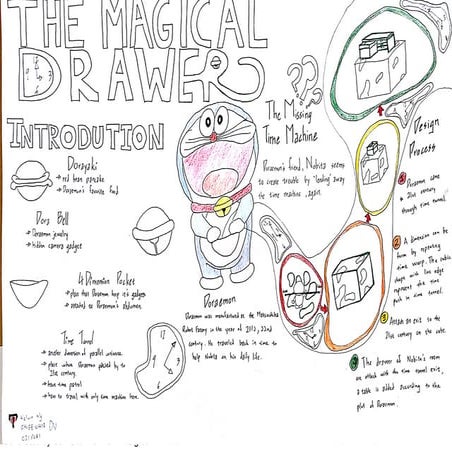 THE MAGICAL
DRAWER
INTRODUTION
Dorayaki
→ red bean pancake
→ Doraemon's favorite food
Dora Bell
→ Doraemon jewelry
→ hidden camera gadget
4 Dimension Pocket
→ place that Doraemon keep it's gadgets
→ attached to Doraemon's abdomen.
Time Tunnel
→ another dimension of parallel universe.
→ place where Doraemon passed by to
21st century.
→ have time portal
→ have to travel with only time machine here.
The Missing
Time Machine
Doraemon's friend, Nobita seems
to create trouble by 'lending' away
the time machine again.
Doraemon
Doraemon was manufactured on the Matsushiba
Robot Factory in the year of 2112, 22nd
century. He travelled back in time to
help Nobita on his daily life.
Design
Process
Doraemon came
21st century
through time tunnel.
2 A dimension can be
form by repeating
time warp. The cubic
shape with line edge
represent the time
path in time tunnel.
3 Assign an exit to the
21st century on the cube.
4 The drawer of Nobita's room
are attach with the time tunnel exit,
a table is added according to the
plot of Doraemon.